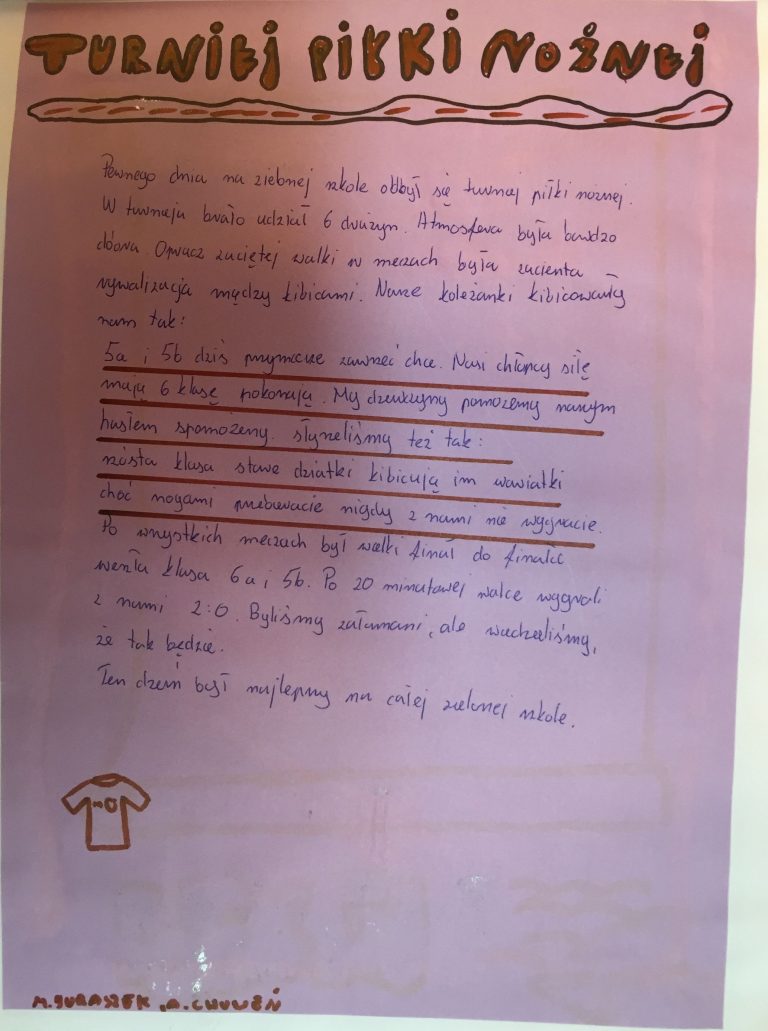 TURNIEJ PIŁKI NOŻNEJ
Pewnego dnia na zielonej szkole odbył się turniej piłki nożnej.
W turnieju brało udział 6 drużyn. Atmosfera była bardzo
dobra. Oprucz zaciętej walki w meczach była zacienta
rywalizacja między kibicami. Nasze koleżanki kibicowały
nam tak:
5a i 5b dziś przymierze zawrzeć chce. Nasi chłopcy siłę
mają 6 klasę pokonają. My dziewczyny pomożemy naszym
hasłem spomożemy. słyszeliśmy też tak:
szósta klasa stare dziadki kibicują im wariatki
choć nogami przebieracie nigdy z nami nie wygracie.
Po wszystkich meczach był wielki finał do finału
weszła klasa 6a i 5b. Po 20 minutowej walce wygrali
z nami 2:0. Byliśmy załamani, ale wiedzieliśmy,
że tak będzie.
Ten dzień był najlepszy na całej zielonej szkole.
M. JURASZEK, A. CHUWEŃ